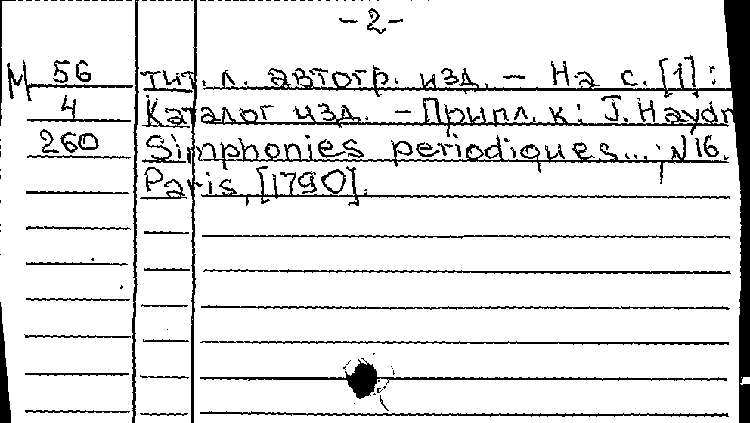 -2-
М 56 тит. л. автогр. изд. — На с. [1]:
4 Каталог изд. — Припл. к: J. Haydn
260 Simphonies periodiques...; N16.
Paris, [1790].